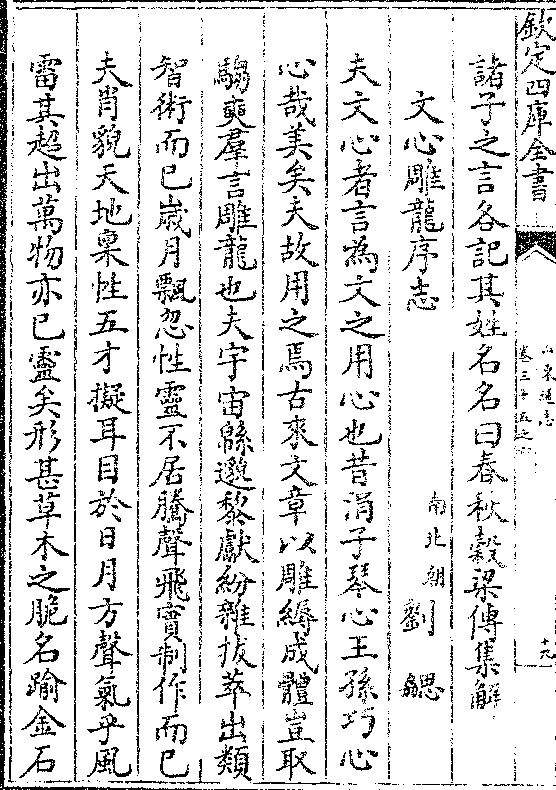 欽定四庫全書
山東通志
卷三十五之
十九
諸子之言各記其姓名名曰春秋穀梁傳集解
文心雕龍序志
南北朝劉勰
夫文心者言為文之用心也昔涓子琴心王孫巧心
心哉美矣夫故用之焉古來文章以雕縟成體豈取
騶奭羣言雕龍也夫宇宙緜邈黎獻紛雜拔萃出類
智術而已歲月飄忽性靈不居騰聲飛實制作而已
夫肖貌天地稟性五才擬耳目於日月方聲氣乎風
雷其超出萬物亦已靈矣形甚草木之脆名踰金石